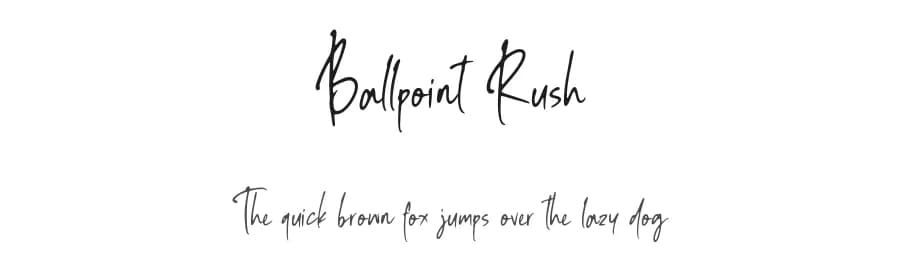 Ballpoint Rush
The quick brown fox jumps over the lazy dog